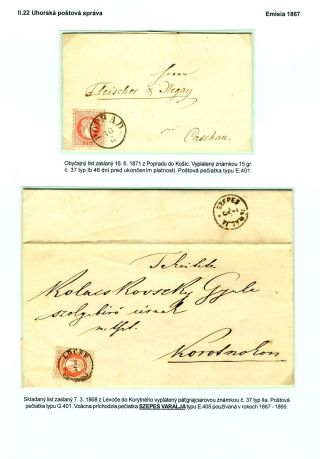 II.22 Uhorská poštová správa
Emisia 1867
Herrn
Fleischer & Megay
Caschau.
POPRAD
Obyčajný list zaslaný 16. 6. 1871 z Popradu do Košíc. Vyplatený známkou 15 gr.
č. 37 typ Ib 46 dní pred ukončením platnosti. Poštová pečiatka typu E.401.
SZEPES
Tekintetes
Gyula
szolgabíró úrnak
Korotnokon
Skladaný list zaslaný 7. 3. 1868 z Levoče do Korytného vyplatený päťgrajciarovou známkou č. 37 typ IIa. Poštová
pečiatka typu G.401. Vzácna príchodzia pečiatka SZEPES VARALJA typu E.405 používaná v rokoch 1867 - 1869.